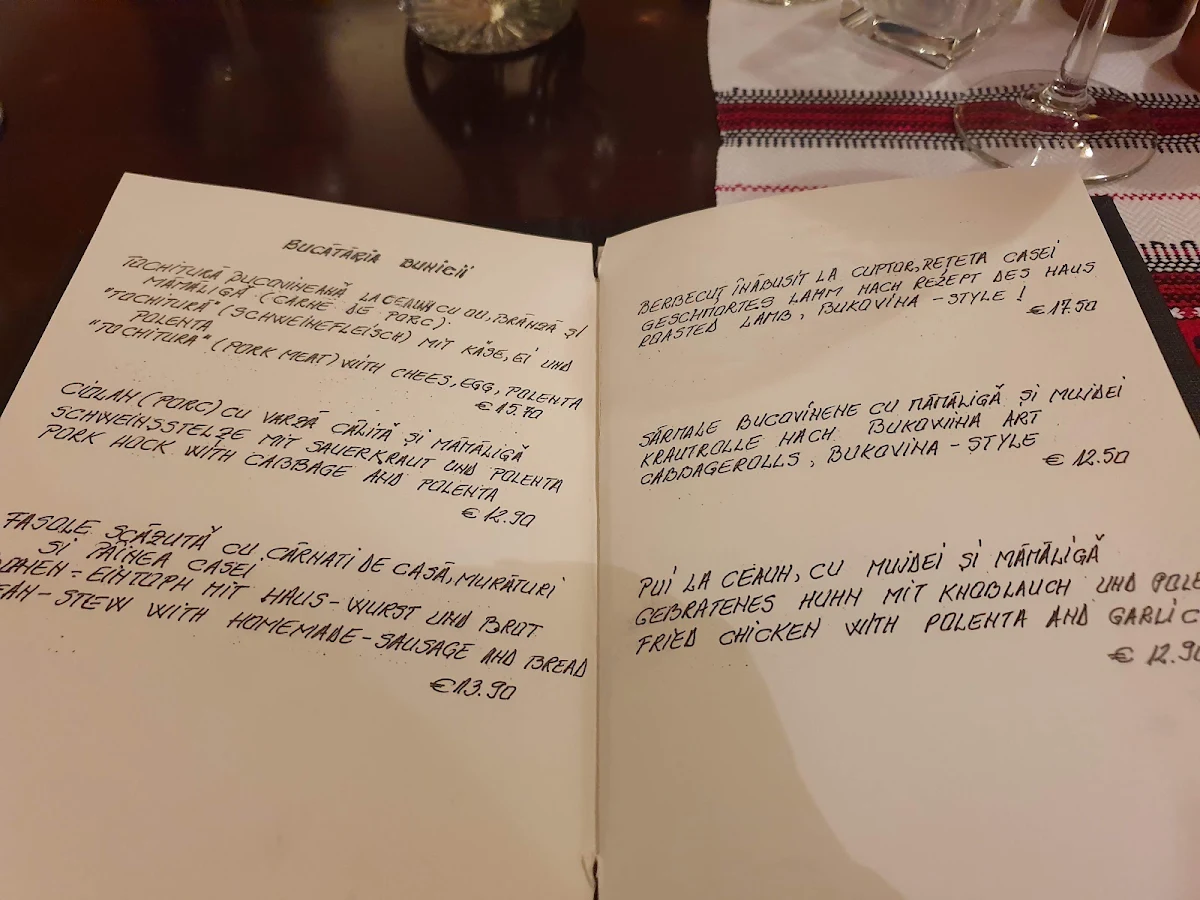 BUCĂTĂRIA BUNICII
TOCHITURĂ BUCOVINEANĂ LA CEAUN CU OU, BRÂNZĂ ȘI
MĂMĂLIGĂ (CARNE DE PORC).
"TOCHITURĂ" (SCHWEINEFLEISCH) MIT KÄSE, EI UND
POLENTA
"TOCHITURĂ" (PORK MEAT) WITH CHEES, EGG, POLENTA
€ 15.70
CIOLAN (PORC) CU VARZĂ CĂLITĂ ȘI MĂMĂLIGĂ
SCHWEINSSTELZE MIT SAUERKRAUT UND POLENTA
PORK HOCK WITH CABBAGE AND POLENTA
€ 12.90
FASOLE SCĂZUTĂ CU CÂRNATI DE CASĂ, MURĂTURI
SI PÂINEA CASEI
OHEN - EINTOPH MIT HAUS - WURST UND BROT
EAN - STEW WITH HOMEMADE - SAUSAGE AND BREAD
€ 13.90
BERBECUȚ ÎNĂBUSIT LA CUPTOR, REȚETA CASEI
GESCHMORTES LAMM NACH REZEPT DES HAUS
ROASTED LAMB, BUKOVINA - STYLE !
€ 17.50
SĂRMALE BUCOVINENE CU MĂMĂLIGĂ ȘI MUJDEI
KRAUTROLLE NACH BUKOWINA ART
CABBAGEROLLS, BUKOVINA - STYLE
€ 12.50
PUI LA CEAUN, CU MUJDEI ȘI MĂMĂLIGĂ
GEBRATENES HUHN MIT KNOBLAUCH UND POLE
FRIED CHICKEN WITH POLENTA AND GARLIC
€ 12.90